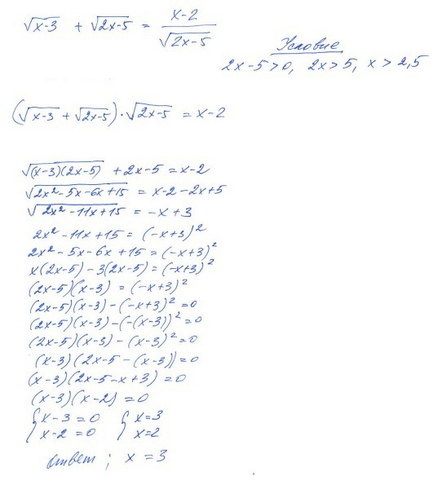 √(x-3) + √(2x-5) = (x-2)/√(2x-5)
Условие
2x-5>0, 2x>5, x>2,5
(√(x-3) + √(2x-5))·√(2x-5) = x-2
√((x-3)(2x-5)) + 2x-5 = x-2
√(2x²-5x-6x+15) = x-2-2x+5
√(2x²-11x+15) = -x+3
2x²-11x+15 = (-x+3)²
2x²-5x-6x+15 = (-x+3)²
x(2x-5)-3(2x-5) = (-x+3)²
(2x-5)(x-3) = (-x+3)²
(2x-5)(x-3)-(-x+3)² = 0
(2x-5)(x-3)-(-(x-3))² = 0
(2x-5)(x-3)-(x-3)² = 0
(x-3)(2x-5-(x-3)) = 0
(x-3)(2x-5-x+3) = 0
(x-3)(x-2) = 0
{ x-3=0 { x=3
{ x-2=0 { x=2
ответ; x=3